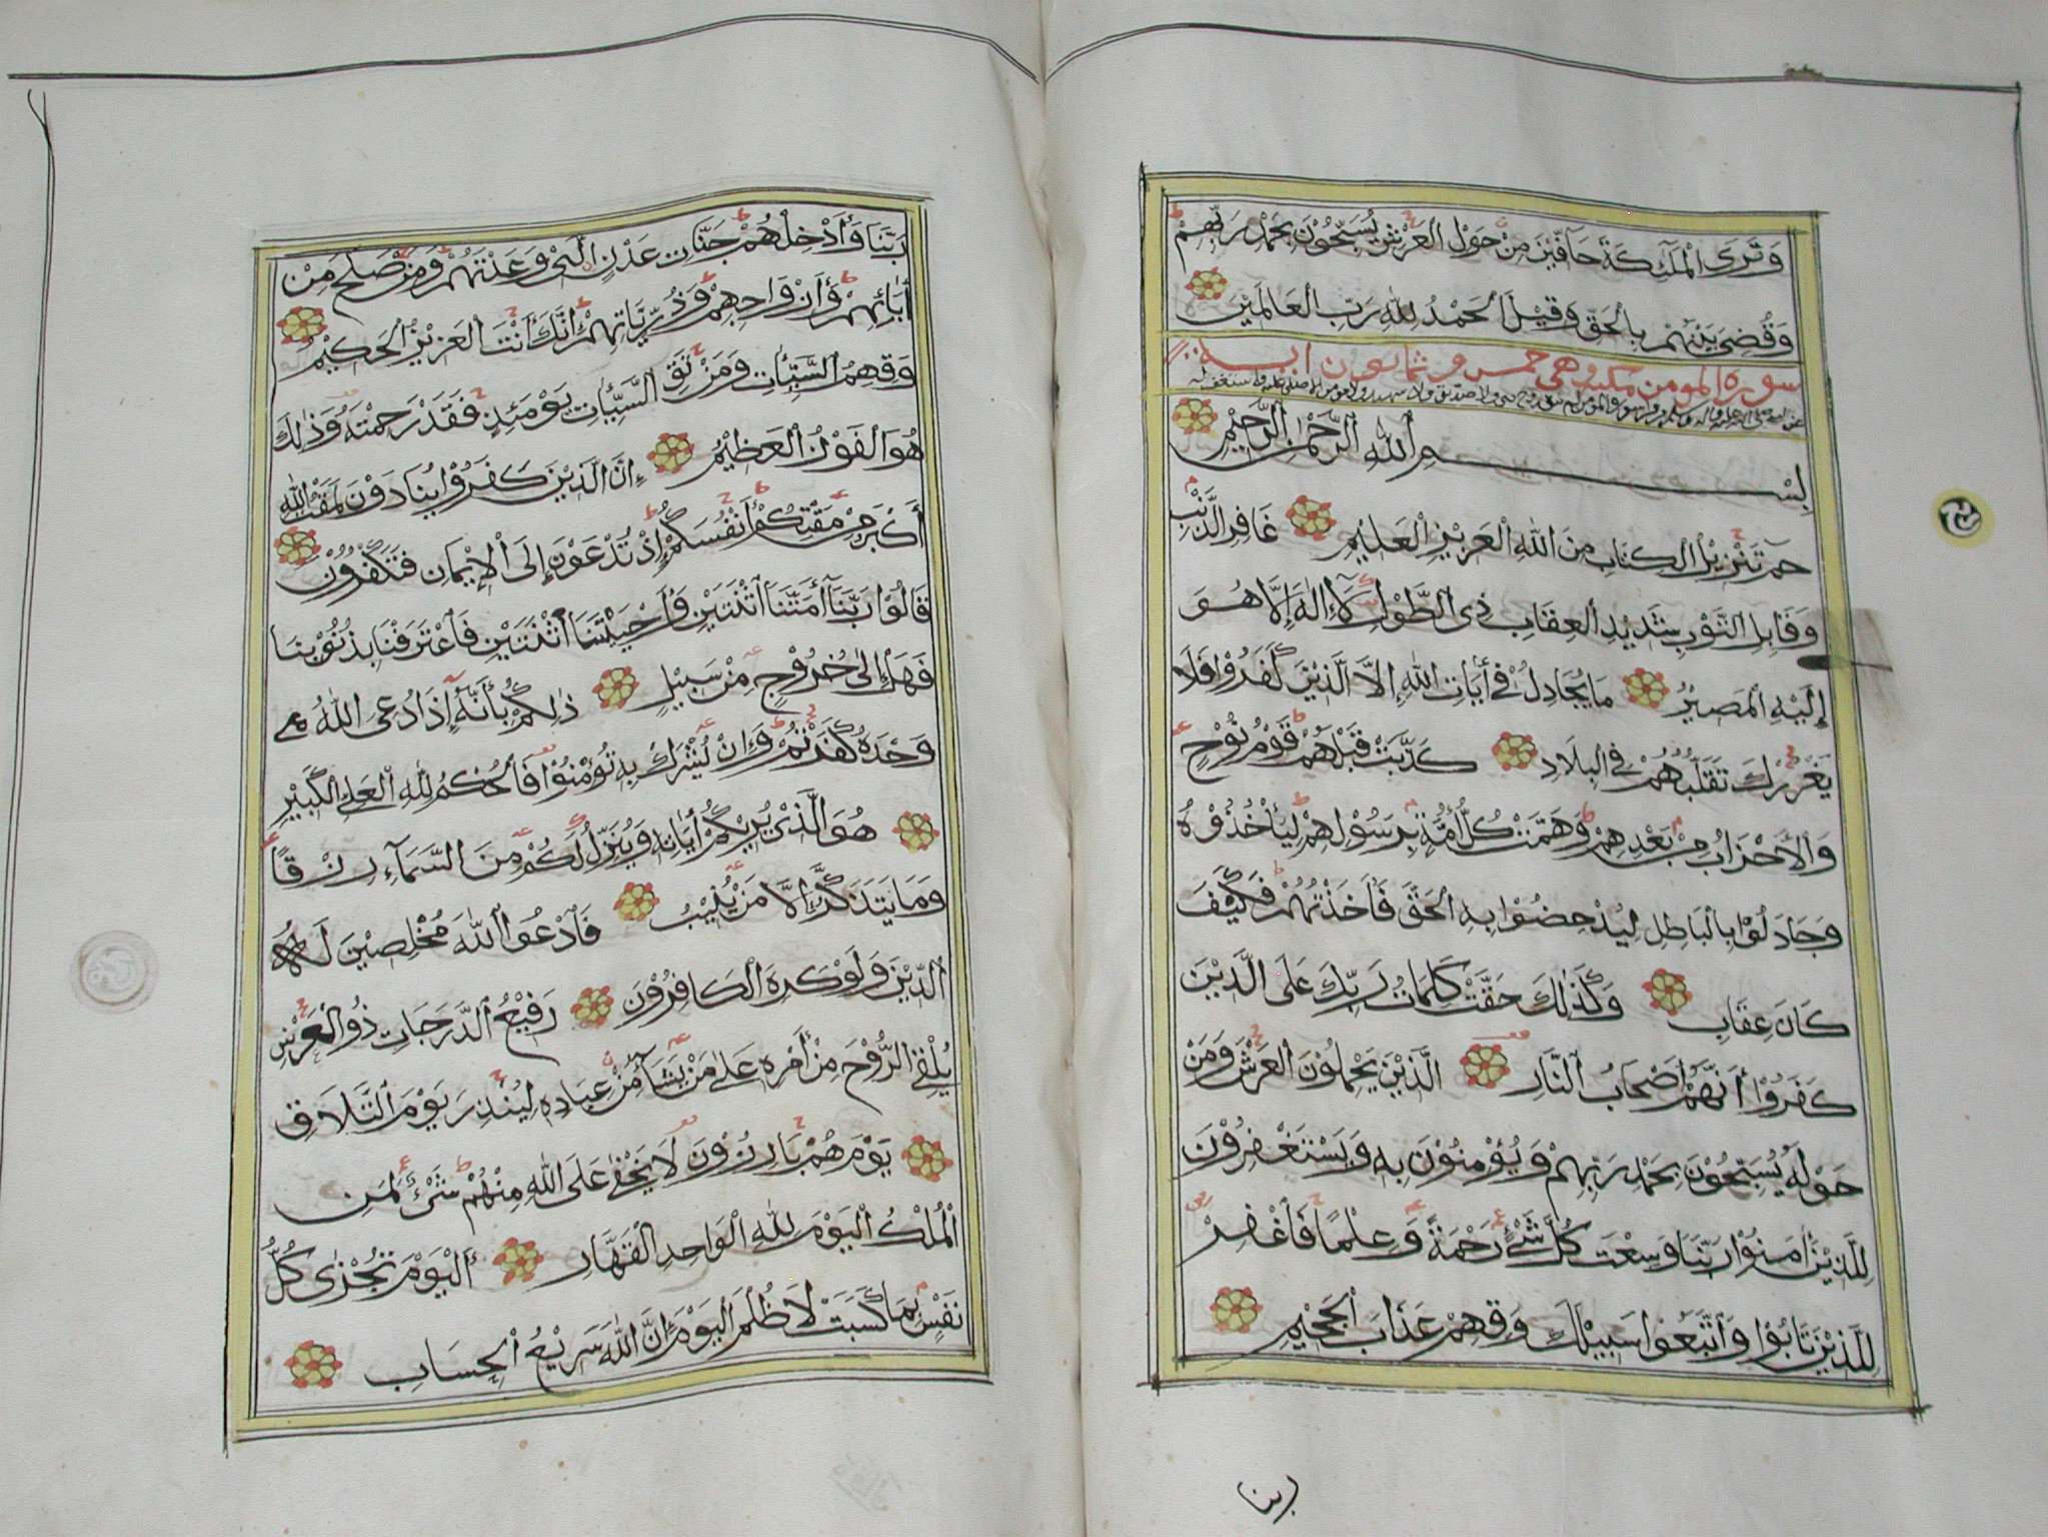 وَتَرَى الْمَلَٓئِكَةَ حَآفِّيْنَ مِنْ حَوْلِ الْعَرْشِ يُسَبِّحُوْنَ بِحَمْدِ رَبِّهِمْ
وَقُضِىَ بَيْنَهُمْ بِالْحَقِّ وَقِيْلَ الْحَمْدُ لِلّٰهِ رَبِّ الْعَالَمِيْنَ
سورة المومن مكية وهي خمس وثمانون اية
بِسْمِ اللّٰهِ الرَّحْمٰنِ الرَّحِيْمِ
حم تَنْزِيْلُ الْكِتَابِ مِنَ اللّٰهِ الْعَزِيْزِ الْعَلِيْمِ غَافِرِ الذَّنْبِ
وَقَابِلِ التَّوْبِ شَدِيْدِ الْعِقَابِ ذِى الطَّوْلِ لَآ اِلٰهَ اِلَّا هُوَ
اِلَيْهِ الْمَصِيْرُ مَا يُجَادِلُ فِىْ اٰيَاتِ اللّٰهِ اِلَّا الَّذِيْنَ كَفَرُوْا فَلَا
يَغْرُرْكَ تَقَلُّبُهُمْ فِى الْبِلَادِ كَذَّبَتْ قَبْلَهُمْ قَوْمُ نُوْحٍ
وَالْاَحْزَابُ مِنْ بَعْدِهِمْ وَهَمَّتْ كُلُّ اُمَّةٍ بِرَسُوْلِهِمْ لِيَأْخُذُوْهُ
وَجَادَلُوْا بِالْبَاطِلِ لِيُدْحِضُوْا بِهِ الْحَقَّ فَاَخَذْتُهُمْ فَكَيْفَ
كَانَ عِقَابِ وَكَذٰلِكَ حَقَّتْ كَلِمَاتُ رَبِّكَ عَلَى الَّذِيْنَ
كَفَرُوْا اَنَّهُمْ اَصْحَابُ النَّارِ الَّذِيْنَ يَحْمِلُوْنَ الْعَرْشَ وَمَنْ
حَوْلَهُ يُسَبِّحُوْنَ بِحَمْدِ رَبِّهِمْ وَيُؤْمِنُوْنَ بِهِ وَيَسْتَغْفِرُوْنَ
لِلَّذِيْنَ اٰمَنُوْا رَبَّنَا وَسِعْتَ كُلَّ شَىْءٍ رَحْمَةً وَعِلْمًا فَاغْفِرْ
لِلَّذِيْنَ تَابُوْا وَاتَّبَعُوْا سَبِيْلَكَ وَقِهِمْ عَذَابَ الْجَحِيْمِ
ربنا
رَبَّنَا وَاَدْخِلْهُمْ جَنَّاتِ عَدْنٍ الَّتِىْ وَعَدْتَهُمْ وَمَنْ صَلَحَ مِنْ
اٰبَائِهِمْ وَاَزْوَاجِهِمْ وَذُرِّيَّاتِهِمْ اِنَّكَ اَنْتَ الْعَزِيْزُ الْحَكِيْمُ
وَقِهِمُ السَّيِّئَاتِ وَمَنْ تَقِ السَّيِّئَاتِ يَوْمَئِذٍ فَقَدْ رَحِمْتَهُ وَذٰلِكَ
هُوَ الْفَوْزُ الْعَظِيْمُ اِنَّ الَّذِيْنَ كَفَرُوْا يُنَادَوْنَ لَمَقْتُ اللّٰهِ
اَكْبَرُ مِنْ مَقْتِكُمْ اَنْفُسَكُمْ اِذْ تُدْعَوْنَ اِلَى الْاِيْمَانِ فَتَكْفُرُوْنَ
قَالُوْا رَبَّنَآ اَمَتَّنَا اثْنَتَيْنِ وَاَحْيَيْتَنَا اثْنَتَيْنِ فَاعْتَرَفْنَا بِذُنُوْبِنَا
فَهَلْ اِلٰى خُرُوْجٍ مِنْ سَبِيْلٍ ذٰلِكُمْ بِاَنَّهٓ اِذَا دُعِىَ اللّٰهُ
وَحْدَهُ كَفَرْتُمْ وَاِنْ يُشْرَكْ بِهِ تُؤْمِنُوْا فَالْحُكْمُ لِلّٰهِ الْعَلِىِّ الْكَبِيْرِ
هُوَ الَّذِىْ يُرِيْكُمْ اٰيَاتِهِ وَيُنَزِّلُ لَكُمْ مِنَ السَّمَآءِ رِزْقًا
وَمَا يَتَذَكَّرُ اِلَّا مَنْ يُنِيْبُ فَادْعُوا اللّٰهَ مُخْلِصِيْنَ لَهُ
الدِّيْنَ وَلَوْ كَرِهَ الْكَافِرُوْنَ رَفِيْعُ الدَّرَجَاتِ ذُو الْعَرْشِ
يُلْقِى الرُّوْحَ مِنْ اَمْرِهِ عَلٰى مَنْ يَشَآءُ مِنْ عِبَادِهِ لِيُنْذِرَ يَوْمَ التَّلَاقِ
يَوْمَ هُمْ بَارِزُوْنَ لَا يَخْفٰى عَلَى اللّٰهِ مِنْهُمْ شَىْءٌ لِمَنِ
الْمُلْكُ الْيَوْمَ لِلّٰهِ الْوَاحِدِ الْقَهَّارِ اَلْيَوْمَ تُجْزٰى كُلُّ
نَفْسٍ بِمَا كَسَبَتْ لَا ظُلْمَ الْيَوْمَ اِنَّ اللّٰهَ سَرِيْعُ الْحِسَابِ